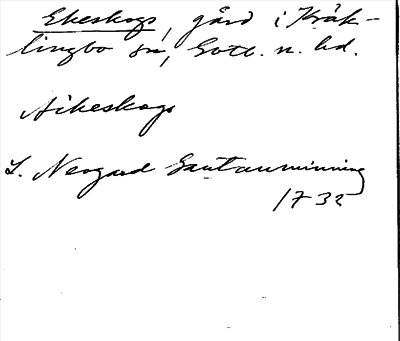 Ekeskogs, gård i Kräk-
lingbo sn, Gotl. n. hd.
Aikeskogs
L. Neogard Gautauminning
1732